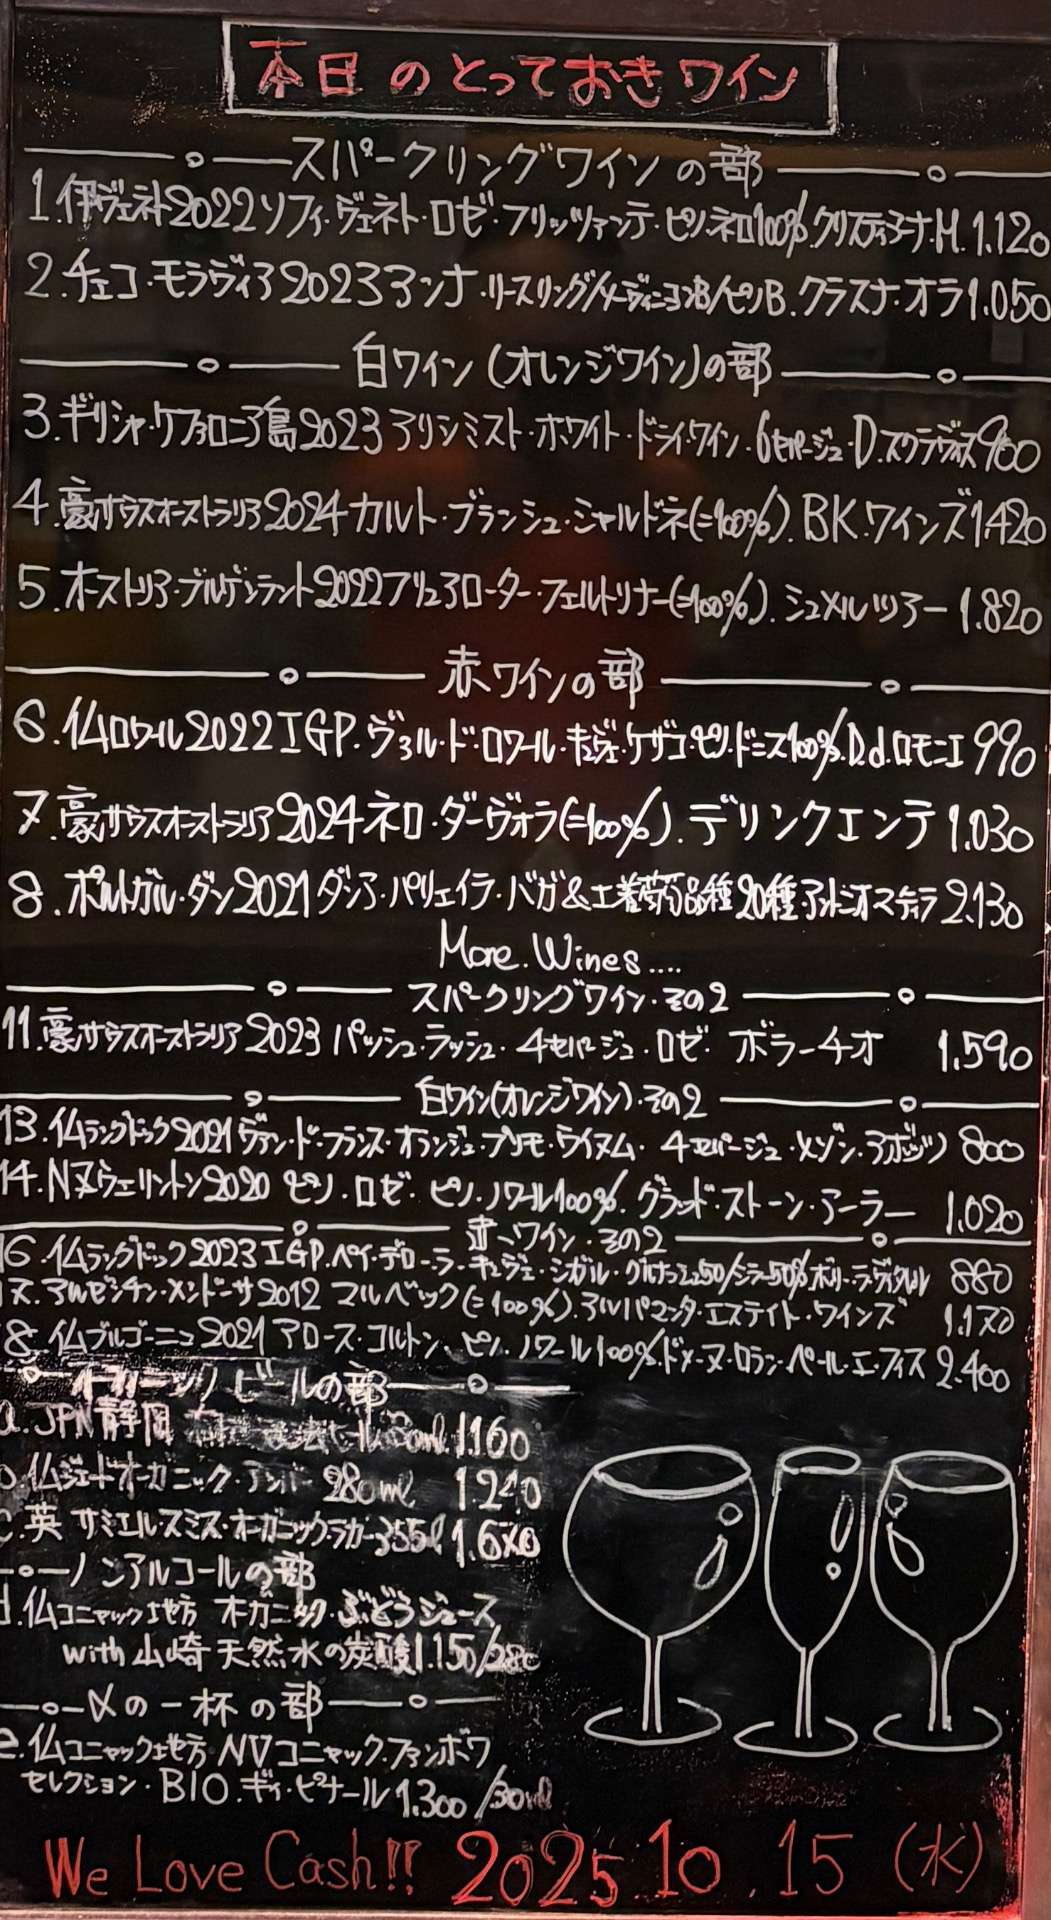 本日のとっておきワイン
スパークリングワインの部
1.伊ヴェネト2022ソフィ・ヴェネト・ロゼ・フリッツァンテ・ピノ・ネロ100%.クリスティアーナ.M.1.120
2.チェコ・モラヴィア2023アンナ・リースリング/ソーヴィニヨンB/ピノB.クラスナ・オラ1.050
白ワイン(オレンジワイン)の部
3.ギリシャ・ケファロニア島2023アリシミスト・ホワイト・ドライ・ワイン・6セパージュ・D.スクラヴォス900
4.豪サウスオーストラリア2024カルト・ブランシュ・シャルドネ(=100%).BK.ワインズ1.420
5.オーストリア・ブルゲンラント2022フリュアローター・フェルトリナー(=100%).シュメルツアー1.820
赤ワインの部
6.仏ロワール2022IGP.ヴァル・ド・ロワール・キュヴェ・ケザコ・ピノ・ドニス100%.D.d.ロモニエ990
7.豪サウスオーストラリア2024ネロ・ダーヴォラ(=100%).デリンクエンテ1.030
8.ポルトガル・ダン2021ダシア・パリェイラ・バガ&土着葡萄品種20種アントニオマディラ2.130
More.Wines....
スパークリングワイン・その2
11.豪サウスオーストラリア2023パッシュ・ラッシュ・4セパージュ・ロゼ・ボラーチオ 1.590
白ワイン(オレンジワイン)・その2
13.仏ラングドック2021ヴァン・ド・フランス・オランジュ・プリモ・ライヌム・4セパージュ・メゾン・アボッツ 800
14.Nヌウェリントン2020 ピノ・ロゼ・ピノ・ノワール100%.グラッド・ストーン・アーラー 1.020
赤ワイン・その2
16.仏ラングドック2023IGP.ペイ・デローラ・キュヴェ・シガル・グルナッシュ50/シラー50%ポリー・ラ・ヴィタルル 880
17.アルゼンチン・メンドーサ2012 マルベック(=100%).アルパマンタ・エステイト・ワインズ 1.170
18.仏ブルゴーニュ2021アロース・コルトン、ピノ・ノワール100%.ドメーヌ・ロラン・ペール・エ・フィス 2.400
オーガニックビールの部
a.JPN静岡 ml 1.160
b.仏ジェードオーガニック・アンバー 280ml 1.240
c.英 サミエル・スミス・オーガニックラガー355ml1.670
ノンアルコールの部
d.仏コニャック地方 オガニ多・ぶどうジュース
with山崎天然水の炭酸1.150/280
〆の一杯の部
e.仏コニャック地方 NVコニャック.ファンボワ
セレクション・BIO.ギィ・ピナール1.300/30ml
We Love Cash!! 2025.10.15(水)